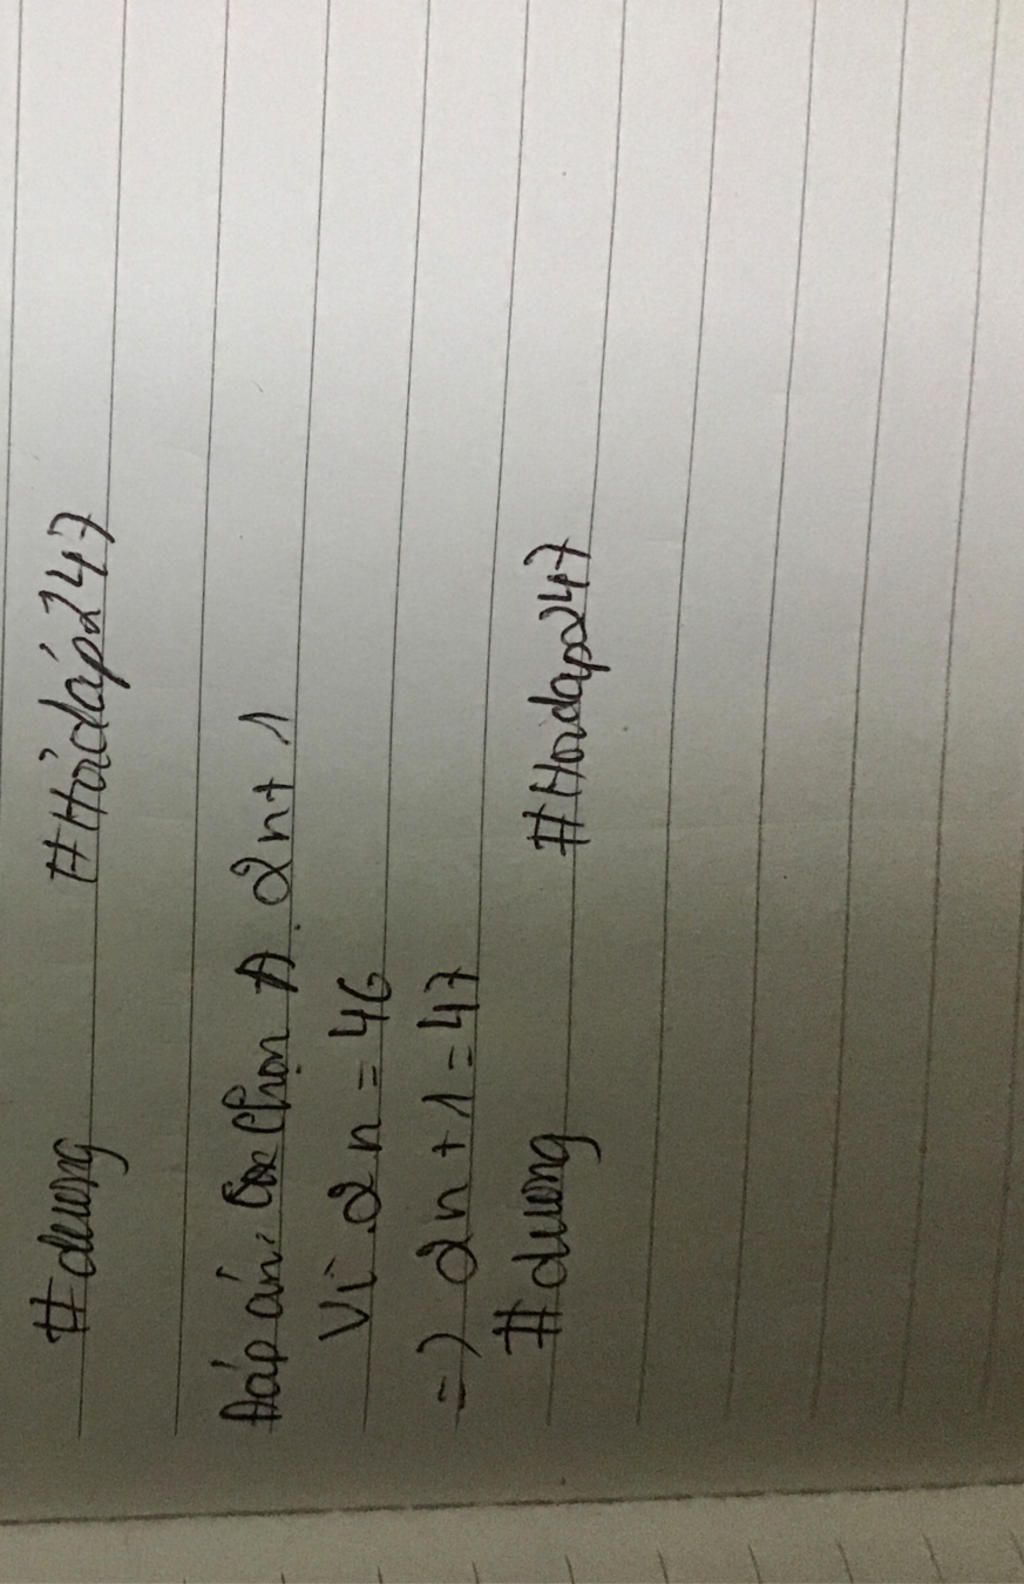 #duong #Hỏidáp247
Đáp án: Chọn A. 2n+1
Vì 2n = 46
=) 2n+1=47
#duong #Hoidap247